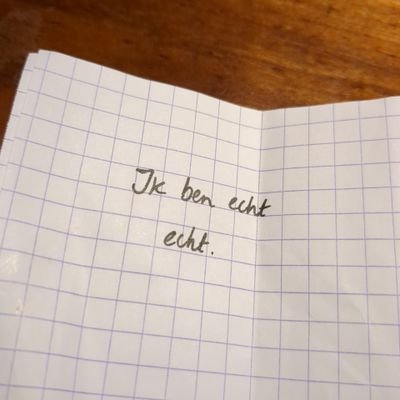 Ik ben echt
echt.